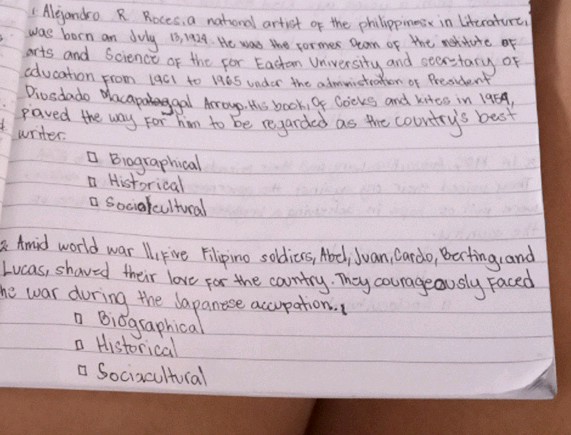 1. Alejandro R. Roces, a national artist of the philippines in Literature,
was born an July 13, 1924. He was the former Dean of the institute of
arts and Science of the far Eastan University and secretary of
education from 1961 to 1965 under the administration of President
Diosdado Macapagal Arroyo. His book, Of Cocks and kites in 1959,
paved the way for him to be regarded as the country's best
writer.
□ Biographical
□ Historical
□ Sociocultural
2. Amid world war II, five Filipino soldiers, Abel, Juan, Cardo, Berting, and
Lucas, shaved their love for the country. They courageously faced
he war during the Japanese accupation.
□ Biographical
□ Historical
□ Sociacultural